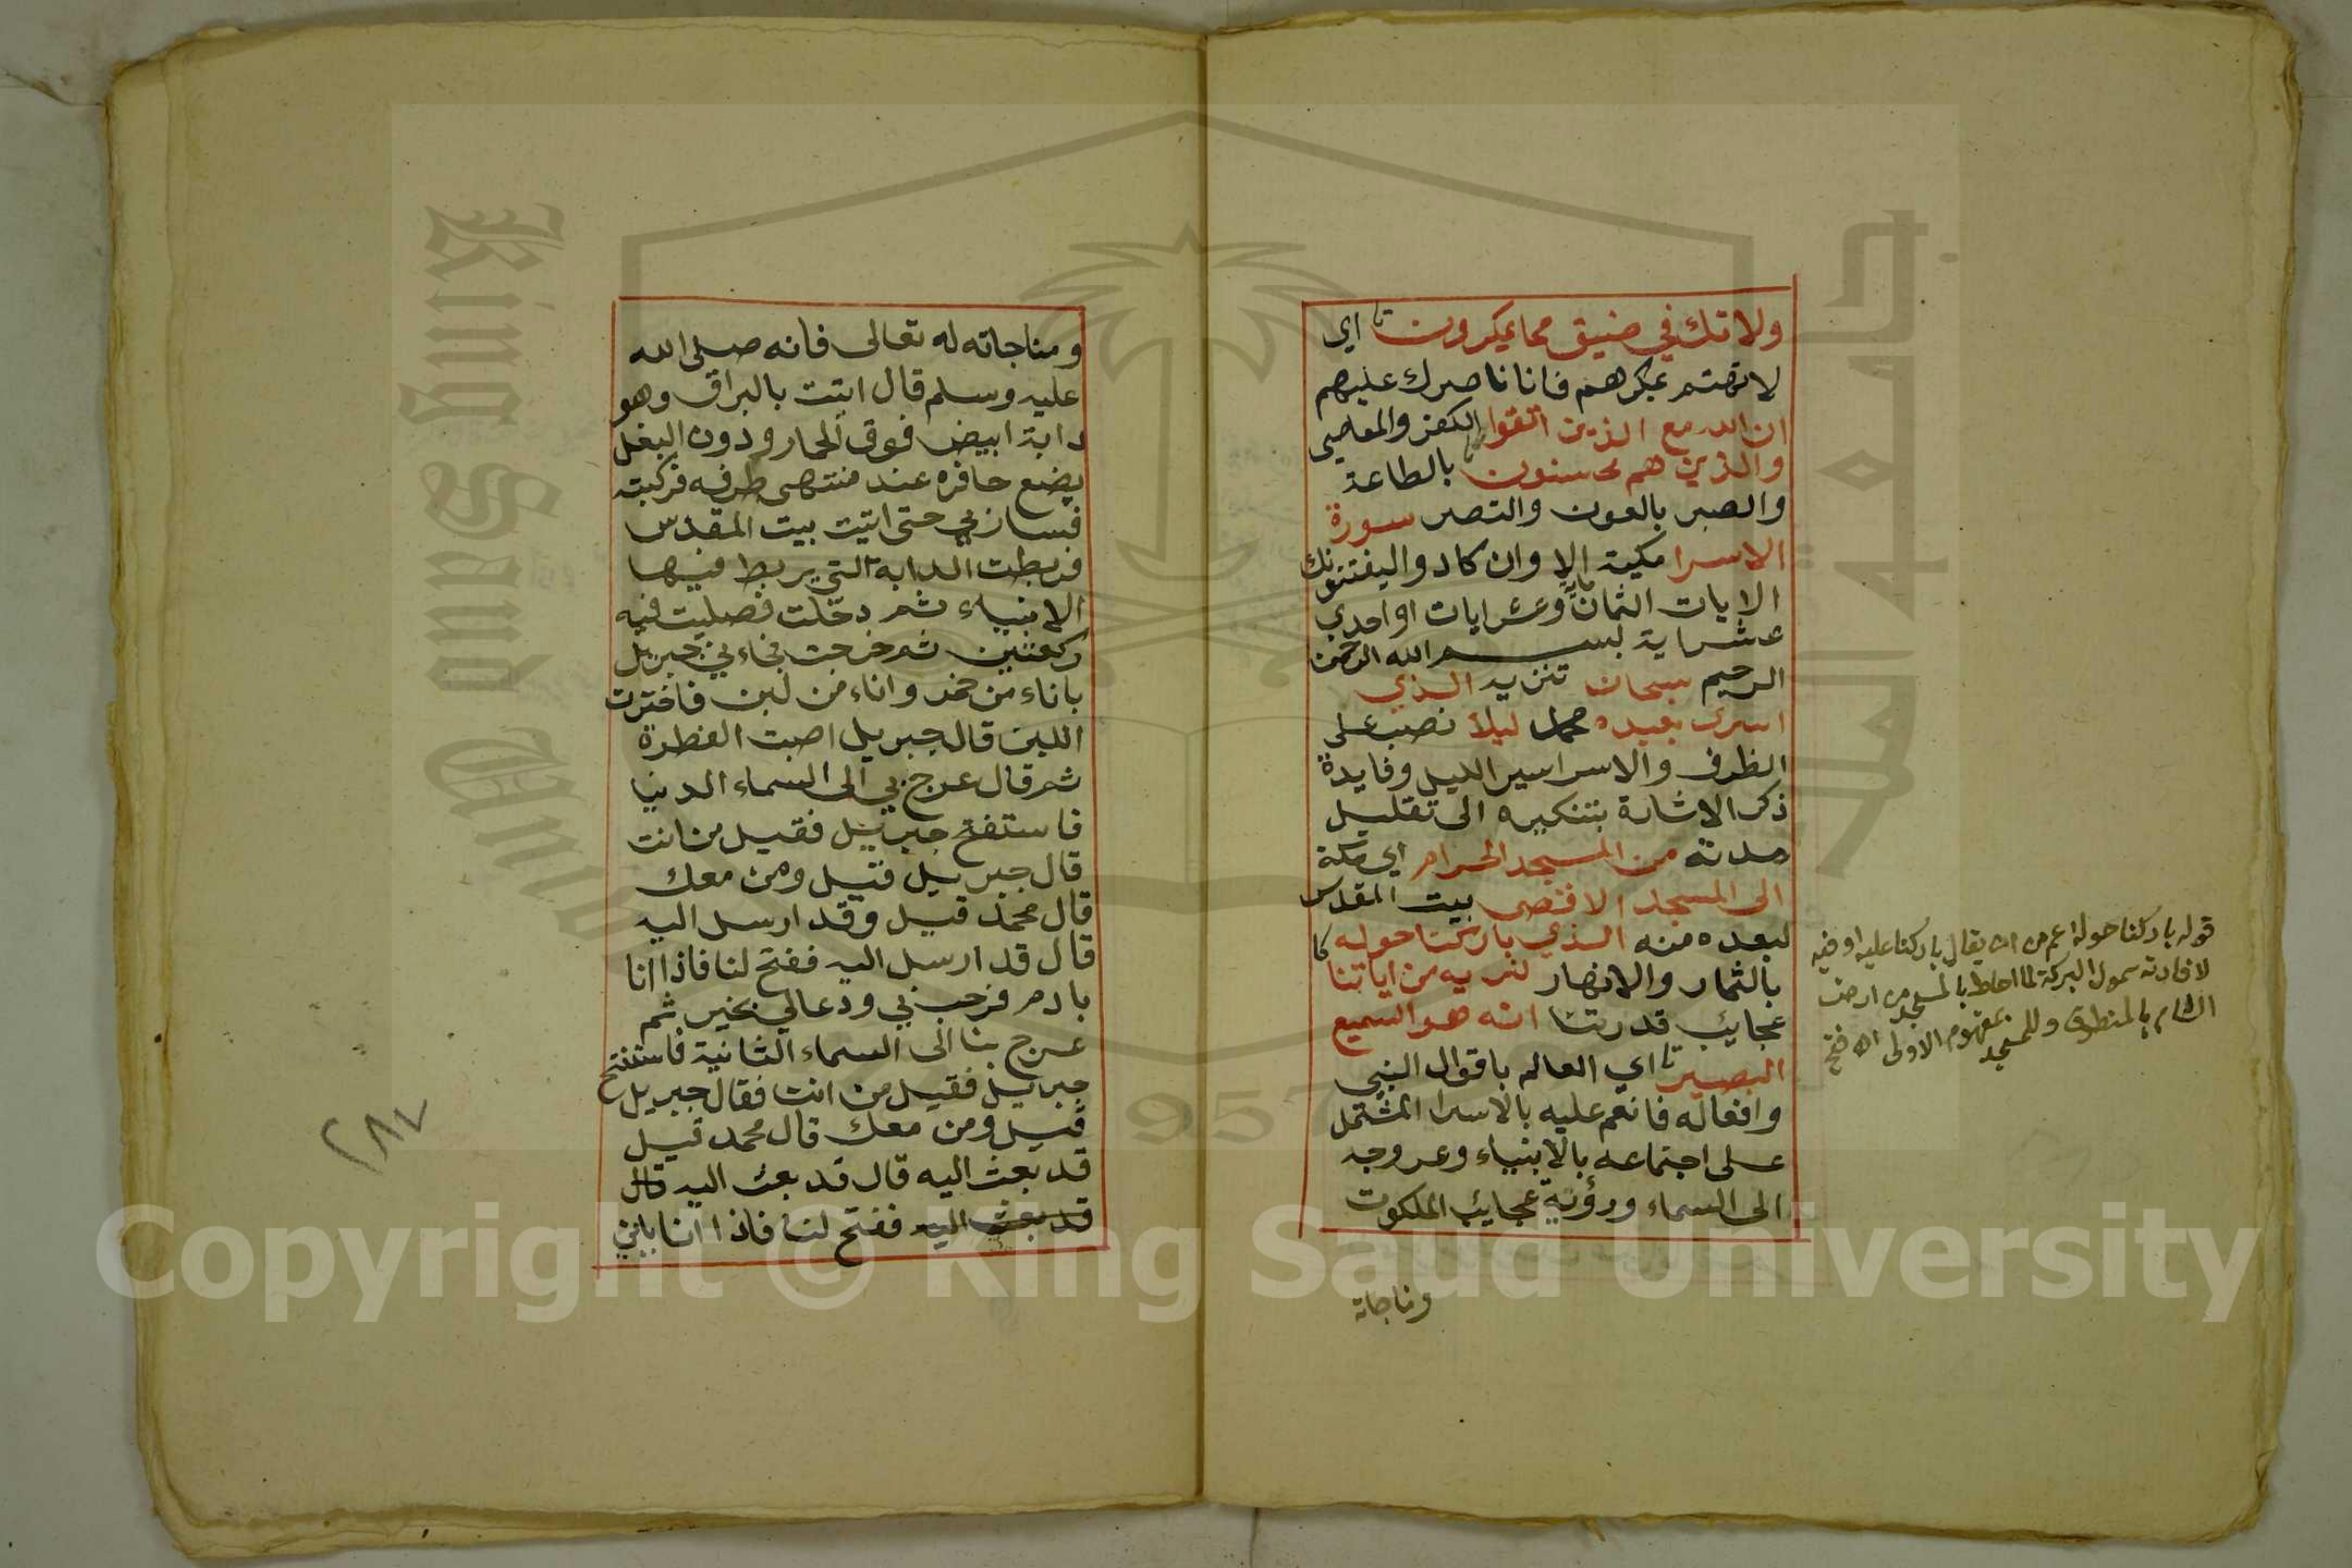 ولا تك في ضيق مما يمكرون اي
لا تهتم بمكرهم فانا ناصرك عليهم
ان الله مع الذين اتقوا الكفر والمعاصي
والذين هم محسنون بالطاعة
والصبر بالعون والنصر سورة
الاسرا مكية الا وان كادوا ليفتنونك
الايات الثمان وعشر ايات او احدي
عشر اية بسم الله الرحمن
الرحيم سبحان تنزيه الذي
اسرى بعبده محمد ليلا نصب على
الظرف والاسرا سير الليل وفايدة
ذكره الاشارة بتنكيره الى تقليل
مدته من المسجد الحرام اي مكة
الى المسجد الاقصى بيت المقدس
لبعده منه الذي باركنا حوله
بالثمار والانهار لنريه من اياتنا
عجايب قدرتنا انه هو السميع
البصير اي العالم باقوال النبي
وافعاله فانعم عليه بالاسرا المشتمل
على اجتماعه بالانبياء وعروجه
الى السماء ورؤية عجايب الملكوت
ومناجاة
قوله باركنا حوله اعم من ان يقال باركنا عليه او فيه
لافادته شمول البركة لما احاط بالمسجد من ارض
الشام بالمنطوق وللمسجد بمفهوم الاولى
ومناجاته له تعالى فانه صلى الله
عليه وسلم قال اتيت بالبراق وهو
دابة ابيض فوق الحمار ودون البغل
يضع حافره عند منتهى طرفه فركبته
فسار بي حتى اتيت بيت المقدس
فربطت الدابة التي يربط فيها
الانبياء ثم دخلت فصليت فيه
ركعتين ثم خرجت فجاءني جبريل
باناء من خمر واناء من لبن فاخترت
اللبن قال جبريل اصبت الفطرة
ثم قال عرج بي الى السماء الدنيا
فاستفتح جبريل فقيل من انت
قال جبريل قيل ومن معك
قال محمد قيل وقد ارسل اليه
قال قد ارسل اليه ففتح لنا فاذا انا
بادم فرحب بي ودعا لي بخير ثم
عرج بنا الى السماء الثانية فاستفتح
جبريل فقيل من انت فقال جبريل
قيل ومن معك قال محمد قيل
قد بعث اليه قال قد بعث اليه قال
قد بعث اليه ففتح لنا فاذا انا بابني
٢٨٧
Copyright © King Saud University
King Saud University
1957